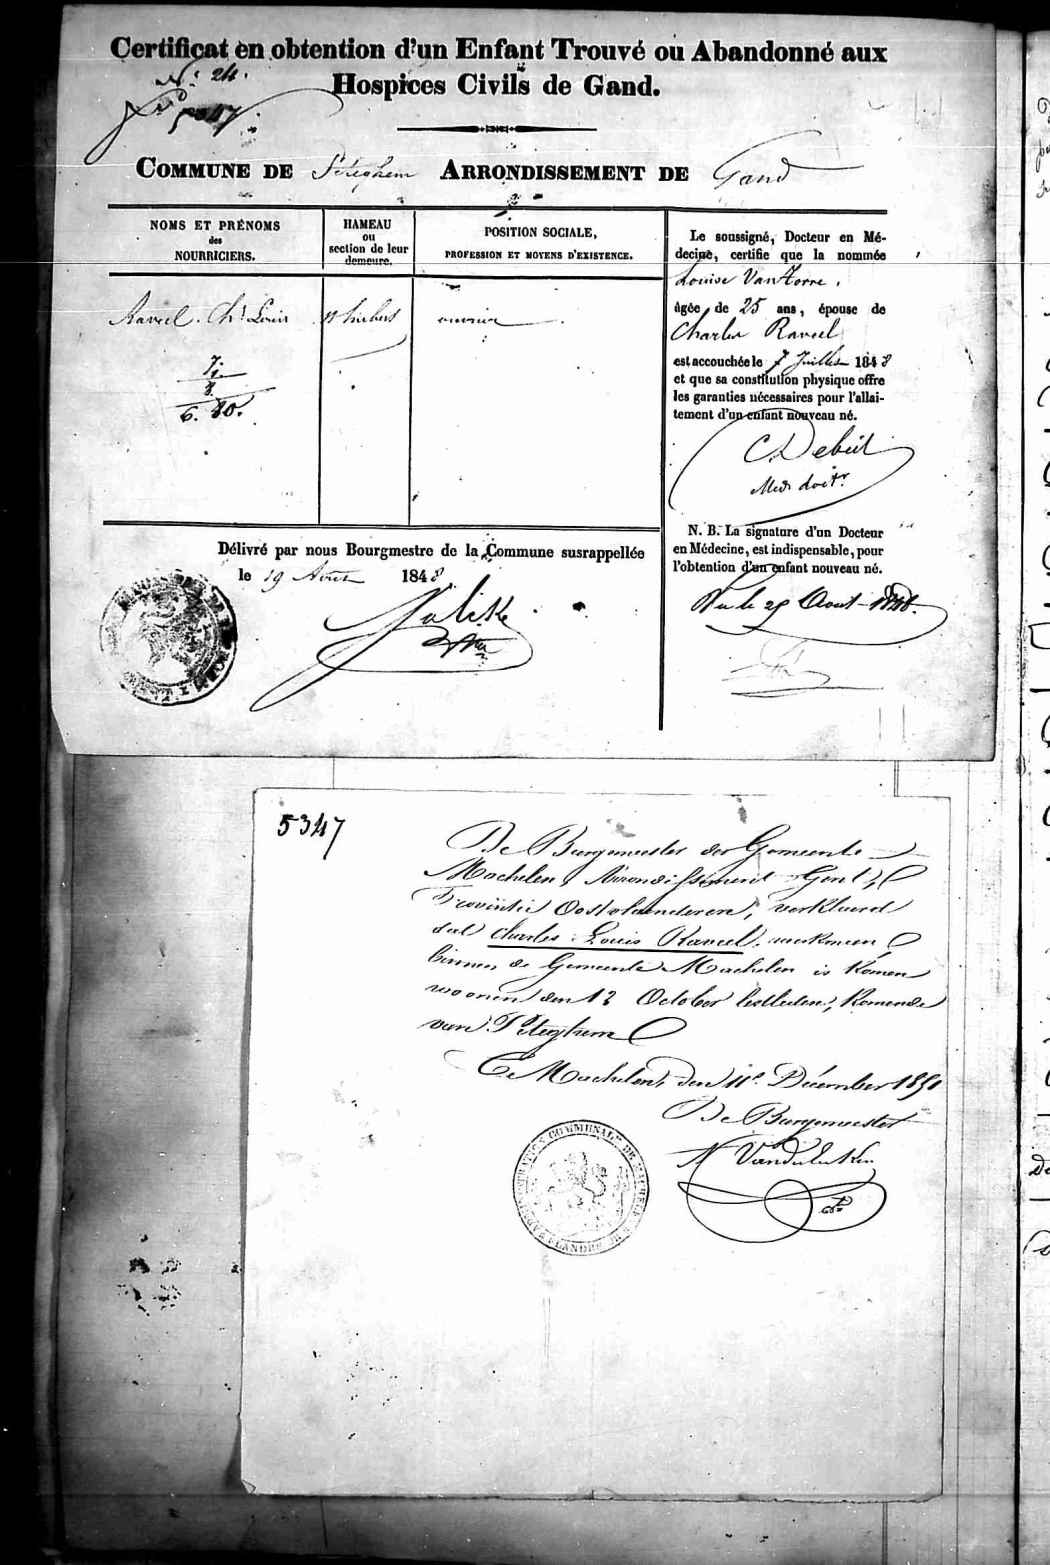 Certificat en obtention d'un Enfant Trouvé ou Abandonné aux
Hospices Civils de Gand.
N° 24.
COMMUNE DE Peteghem ARRONDISSEMENT DE Gand
NOMS ET PRÉNOMS
des
NOURRICIERS.
HAMEAU
ou
section de leur
demeure.
POSITION SOCIALE,
PROFESSION ET MOYENS D'EXISTENCE.
Raveel Ch. Louis
ouvrier
7.
8.
6. 80.
Le soussigné, Docteur en Mé-
decine, certifie que la nommée
Louise Van
âgée de 25 ans, épouse de
Charles Raveel
est accouchée le 7 Juillet 1848
et que sa constitution physique offre
les garanties nécessaires pour l'allai-
tement d'un enfant nouveau né.
N. B. La signature d'un Docteur
en Médecine, est indispensable, pour
l'obtention d'un enfant nouveau né.
Vu le 29 Aout 1848.
Délivré par nous Bourgmestre de la Commune susrappellée
le 19 Aout 1848.
5347
De Burgemeester der Gemeente
Machelen, Arrondissement Gent,
Provintie Oostvlaenderen, verklaerd
dat Charles Louis Raveel, werkman
binnen de Gemeente Machelen is komen
woonen den 12 October lestleden, komende
van Peteghem
Machelen, den 11e Décember 1850
De Burgemeester
COMMUNALE DE MACHELEN